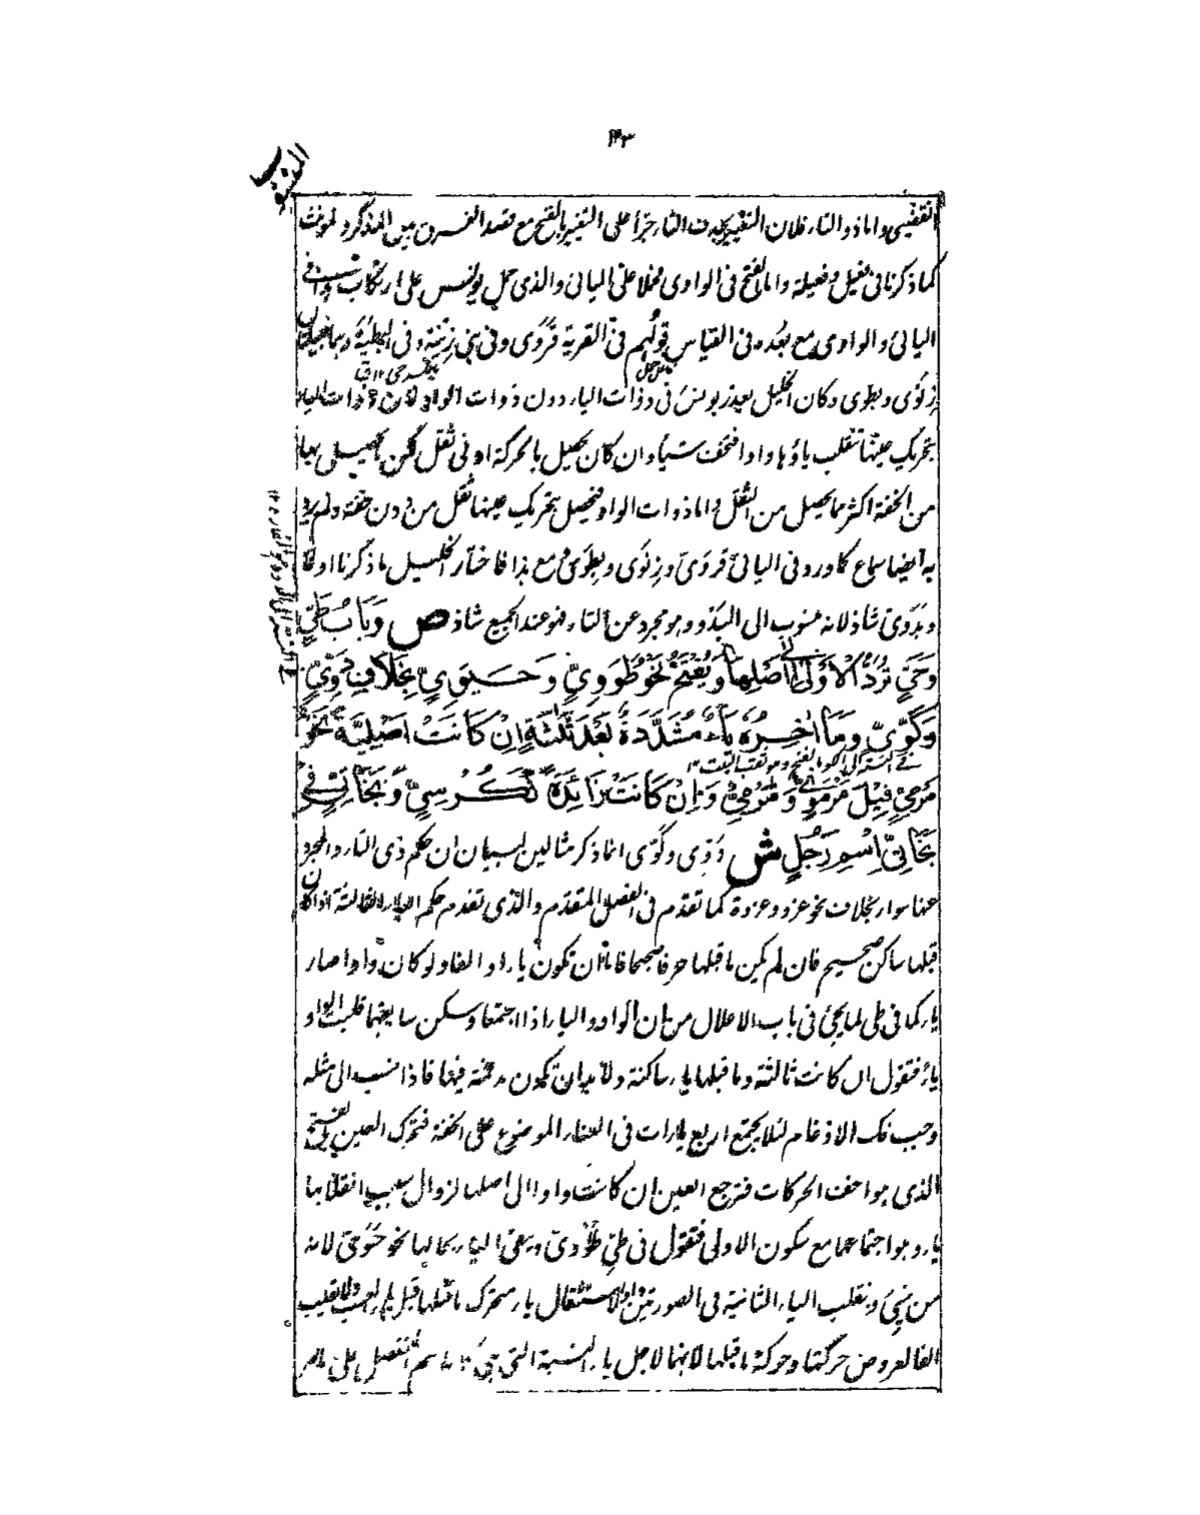 ١٢٣
المنسوب
التغيير واما ذو التاء فلان التغيير بحذف التاء جرأ على التغيير بالفتح مع قصد الفرق بين المذكر والمؤنث
كما ذكرنا فى فعيل وفعيلة واما الفتح فى الواوى فحملا على اليائى والذى حمل يونس على ارتكاب هذا فى
اليائى والواوى مع بعده فى القياس قولهم فى القرية قَرَوى وفى بنى زِنْيَة وفى البطية وهما قبيلتان
زِنَوى وبطوى وكان الخليل يعذر يونس فى ذوات الياء دون ذوات الواو لان ذوات الياء
بتحريك عينها تنقلب ياؤها واوا فتخف شيئا وان كان يحصل بالحركة ادنى ثقل لكن يحصل بها
من الخفة اكثر مما يحصل من الثقل واما ذوات الواو فيحصل بتحريك عينها ثقل من دون خفة ولم يرد
به ايضا سماع كما ورد فى اليائى قروى وزنوى وبطوى مع هذا فاختار الخليل ما ذكرنا اولا
وبدوى شاذ لانه منسوب الى البدو وهو مجرد عن التاء فهو عند الجميع شاذ ص وَبَابُ طَيٍّ
وَحَيٍّ تُرَدُّ الْأُوْلَى إِلَى أَصْلِهَا وَتُفْتَحُ نَحْوُ طَوَوِيٍّ وَحَيَوِيٍّ بِخِلَافِ دَوِّيٍّ
وَكَوِّيٍّ وَمَا اٰخِرُهٗ يَاءٌ مُشَدَّدَةٌ بَعْدَ ثَلٰثَةٍ اِنْ كَانَتْ اَصْلِيَّةً نَحْوُ
مَرْمِيٍّ قِيْلَ مَرْمَوِيٌّ وَمَرْمِيٌّ وَاِنْ كَانَتْ زَائِدَةً كَكُرْسِيٍّ وَبَخَاتِيٍّ فِي
بَخَاتِيَّ اِسْمِ رَجُلٍ ش دَوّى وكَوّى انما ذكر مثالين لبيان ان حكم ذى التاء والمجرد
عنها سواء بخلاف نحو غزو وغزوة كما تقدم فى الفصل المتقدم والذى تقدم حكم الياء الثالثة اذا كان
قبلها ساكن صحيح فان لم يكن ما قبلها حرفا صحيحا فاما ان تكون ياء او الفا ولو كان واوا صار
ياء كما فى طى لما يجئ فى باب الاعلال من ان الواو والياء اذا اجتمعا وسكن سابقهما قلبت الواو
ياء فنقول ان كانت ثالثة وما قبلها ياء ساكنة ولا بد ان تكون مدغمة فيها فاذا نسب الى مثله
وجب فك الادغام لئلا يجتمع اربع ياءات فى البناء الموضوع على الخفة فتحرك العين بالفتح
الذى هو اخف الحركات فترجع العين ان كانت واوا الى اصلها لزوال سبب انقلابها
ياء وهو اجتماعهما مع سكون الاولى فتقول فى طى طَوَوى وتبقى الياء بحالها نحو حَيَوى لانه
من حيى وتقلب الياء الثانية فى الصورتين واوا لاستثقال ياء متحرك ما قبلها قبل ياء النسب ولم تقلب
الفا لعروض حركتها وحركة ما قبلها لانها لاجل ياء النسبة التى هى كالاسم المنفصل على ما مر